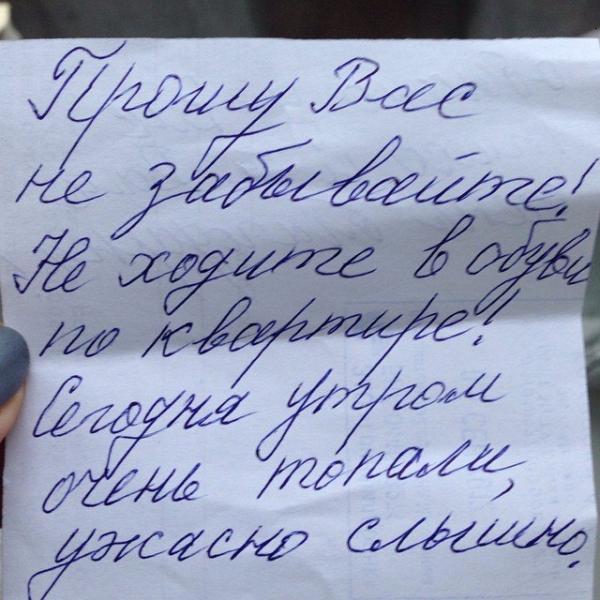 Прошу Вас
не забывайте!
Не ходите в обуви
по квартире!
Сегодня утром
очень топали,
ужасно слышно.